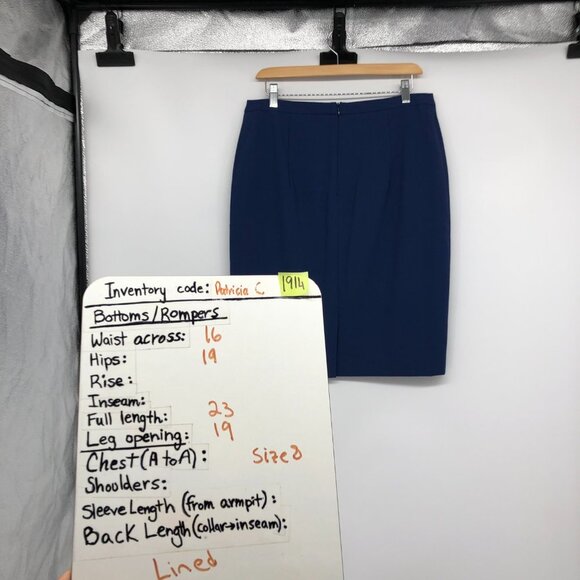 Inventory code: Patricia C 1914
Bottoms/Rompers
Waist across: 16
Hips: 19
Rise:
Inseam:
Full length: 23
Leg opening: 19
Chest (A to A):
Size 8
Shoulders:
Sleeve Length (from armpit):
Back Length (collar→inseam):
Lined